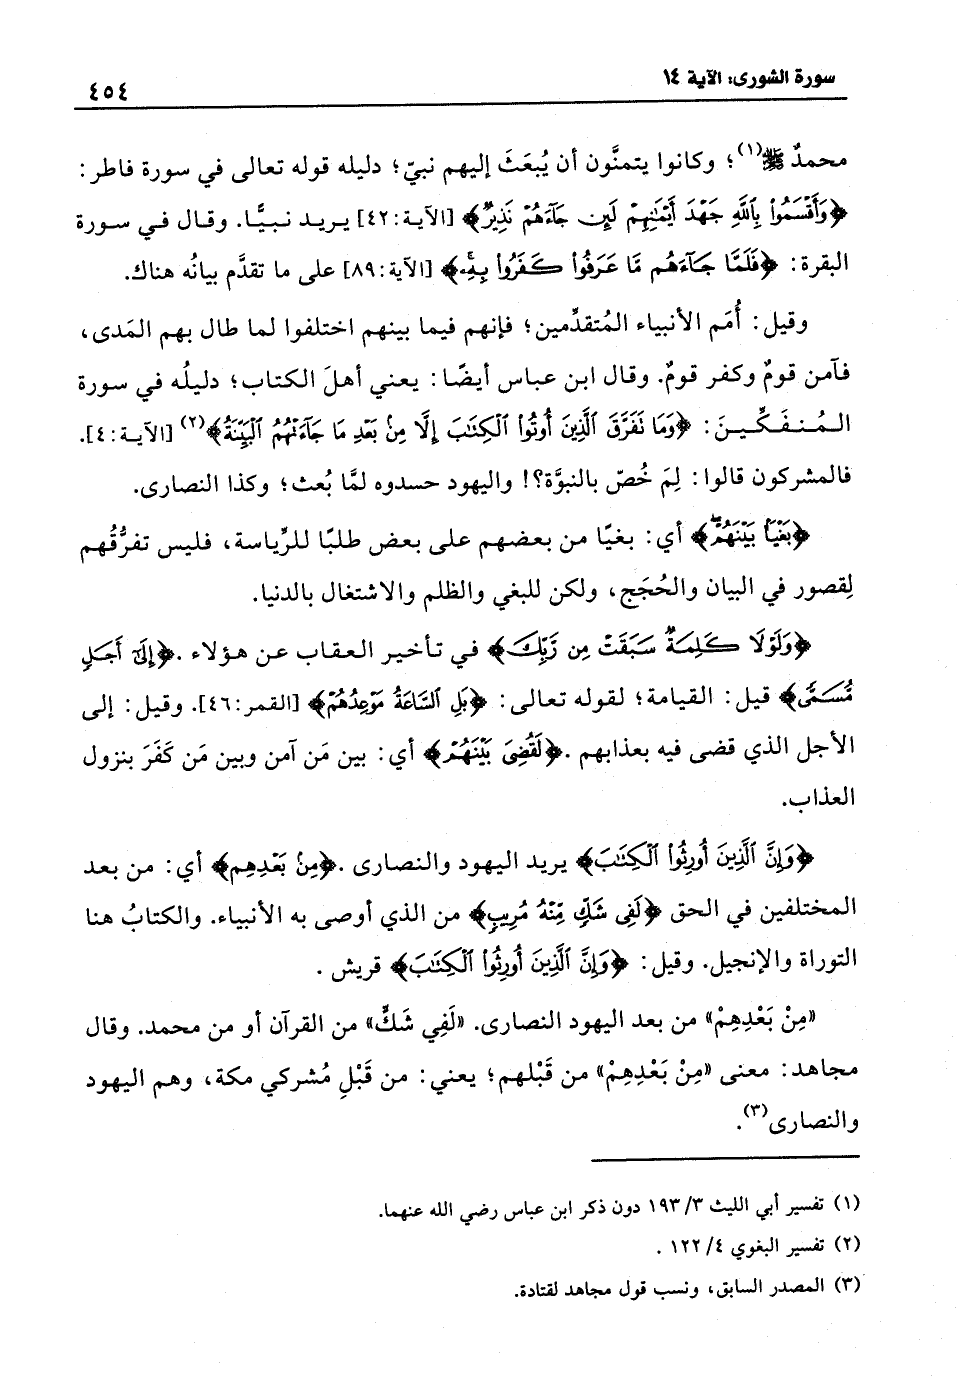 سورة الشورى: الآية ١٤
٤٥٤
محمدٌ ﷺ(١)؛ وكانوا يتمنَّون أن يُبعَثَ إليهم نبيّ؛ دليله قوله تعالى في سورة فاطر:
﴿وَأَقْسَمُوا۟ بِٱللَّهِ جَهْدَ أَيْمَـٰنِهِمْ لَئِن جَآءَهُمْ نَذِيرٌ﴾ [الآية:٤٢] يريد نبيًّا. وقال في سورة
البقرة: ﴿فَلَمَّا جَآءَهُم مَّا عَرَفُوا۟ كَفَرُوا۟ بِهِۦ﴾ [الآية:٨٩] على ما تقدَّم بيانُه هناك.
وقيل: أُمَم الأنبياء المُتقدِّمين؛ فإنهم فيما بينهم اختلفوا لما طال بهم المَدى،
فآمن قومٌ وكفر قومٌ. وقال ابن عباس أيضًا: يعني أهلَ الكتاب؛ دليلُه في سورة
المُنفَكِّينَ: ﴿وَمَا تَفَرَّقَ ٱلَّذِينَ أُوتُوا۟ ٱلْكِتَـٰبَ إِلَّا مِنۢ بَعْدِ مَا جَآءَتْهُمُ ٱلْبَيِّنَةُ﴾(٢) [الآية:٤].
فالمشركون قالوا: لِمَ خُصّ بالنبوَّة؟! واليهود حسدوه لمَّا بُعث؛ وكذا النصارى.
﴿بَغْيًۢا بَيْنَهُمْ﴾ أي: بغيًا من بعضهم على بعض طلبًا للرِّياسة، فليس تفرُّقُهم
لِقصور في البيان والحُجَج، ولكن للبغي والظلم والاشتغال بالدنيا.
﴿وَلَوْلَا كَلِمَةٌ سَبَقَتْ مِن رَّبِّكَ﴾ في تأخير العقاب عن هؤلاء .﴿إِلَىٰٓ أَجَلٍ
مُّسَمًّى﴾ قيل: القيامة؛ لقوله تعالى: ﴿بَلِ ٱلسَّاعَةُ مَوْعِدُهُمْ﴾ [القمر:٤٦]. وقيل: إلى
الأجل الذي قضى فيه بعذابهم .﴿لَّقُضِىَ بَيْنَهُمْ﴾ أي: بين مَن آمن وبين مَن كَفَرَ بنزول
العذاب.
﴿وَإِنَّ ٱلَّذِينَ أُورِثُوا۟ ٱلْكِتَـٰبَ﴾ يريد اليهود والنصارى .﴿مِنۢ بَعْدِهِمْ﴾ أي: من بعد
المختلفين في الحق ﴿لَفِى شَكٍّ مِّنْهُ مُرِيبٍ﴾ من الذي أوصى به الأنبياء. والكتابُ هنا
التوراة والإنجيل. وقيل: ﴿وَإِنَّ ٱلَّذِينَ أُورِثُوا۟ ٱلْكِتَـٰبَ﴾ قريش .
«مِنْ بَعْدِهِمْ» من بعد اليهود النصارى. «لَفِي شَكٍّ» من القرآن أو من محمد. وقال
مجاهد: معنى «مِنْ بَعْدِهِمْ» من قَبْلهم؛ يعني: من قَبْلِ مُشركي مكة، وهم اليهود
والنصارى(٣).
(١) تفسير أبي الليث ٣/ ١٩٣ دون ذكر ابن عباس رضي الله عنهما.
(٢) تفسير البغوي ٤/ ١٢٢ .
(٣) المصدر السابق، ونسب قول مجاهد لقتادة.